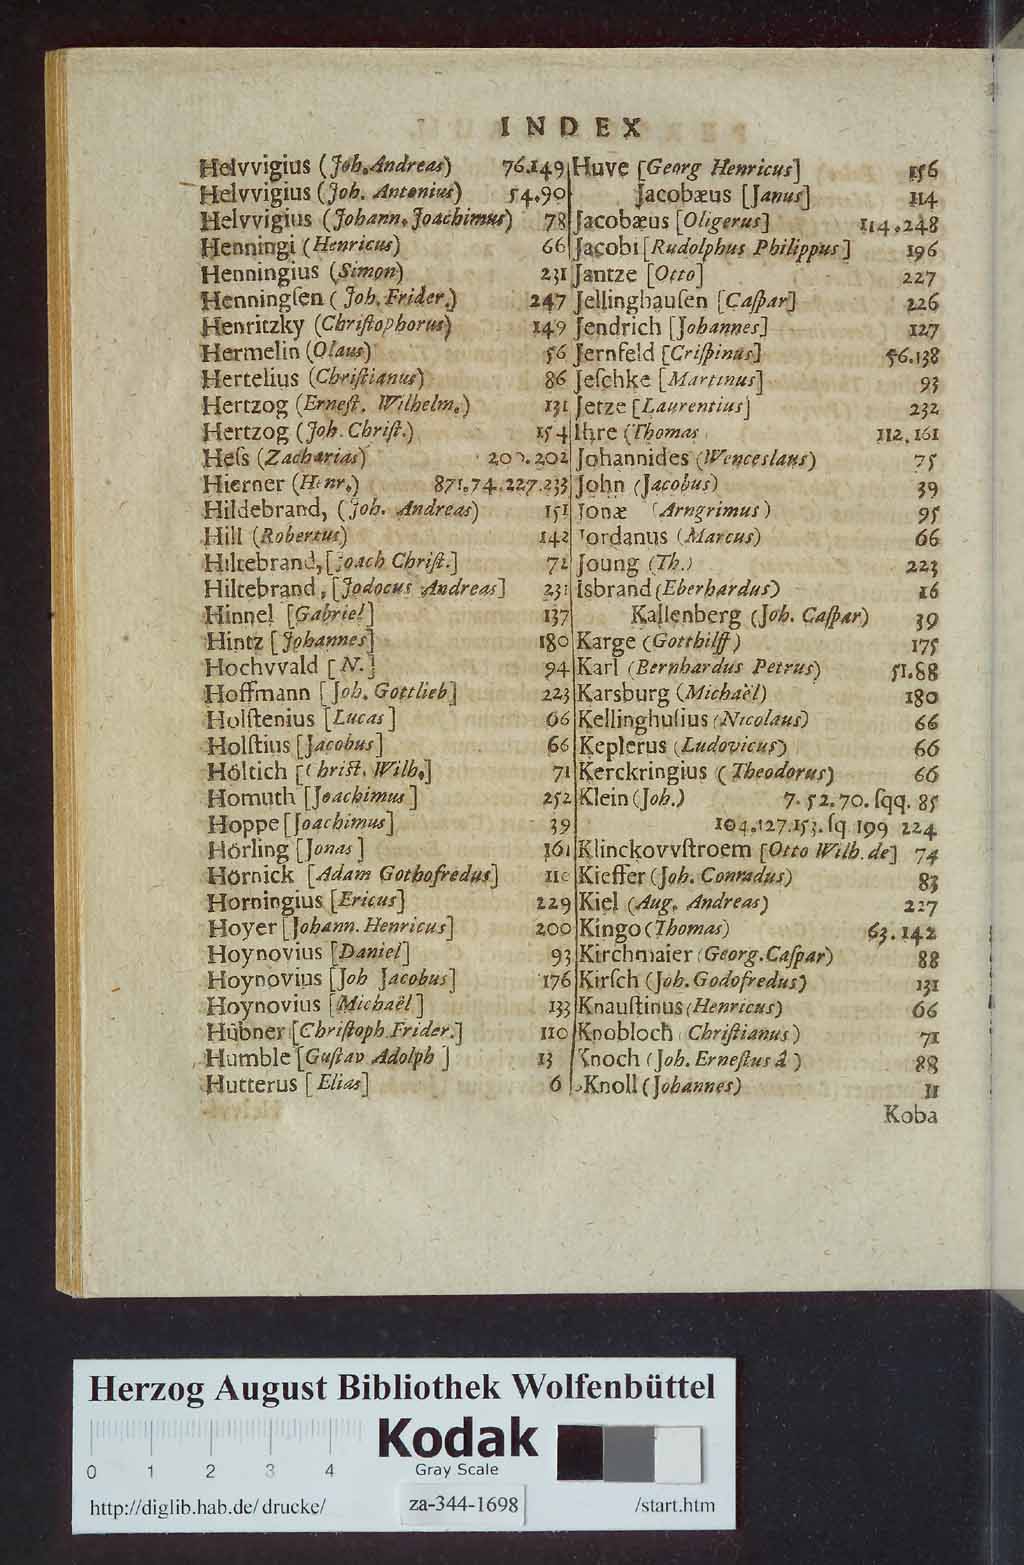 INDEX
Helvvigius (Joh. Andreas) 76.149
Helvvigius (Joh. Antonius) 54.90
Helvvigius (Johann. Joachimus) 78
Henningi (Henricus) 66
Henningius (Simon) 231
Henningſen (Joh. Frider.) 247
Henritzky (Chriſtophorus) 149
Hermelin (Olaus) 56
Hertelius (Chriſtianus) 86
Hertzog (Erneſt. Wilhelm.) 131
Hertzog (Joh. Chriſt.) 154
Heſs (Zacharias) 200.202
Hierner (Henr.) 871.74.227.233
Hildebrand, (Joh. Andreas) 151
Hill (Robertus) 142
Hiltebrand, [Joach Chriſt.] 72
Hiltebrand, [Jodocus Andreas] 231
Hinnel [Gabriel] 137
Hintz [Johannes] 180
Hochvvald [N.] 94
Hoffmann [Joh. Gottlieb] 223
Holſtenius [Lucas] 66
Holſtius [Jacobus] 66
Höltich [Chriſt. Wilh.] 71
Homuth [Joachimus] 252
Hoppe [Joachimus] 39
Hörling [Jonas] 161
Hörnick [Adam Gothofredus] 110
Horningius [Ericus] 229
Hoyer [Johann. Henricus] 200
Hoynovius [Daniel] 93
Hoynovius [Joh Jacobus] 176
Hoynovius [Michaël] 133
Hübner [Chriſtoph Frider.] 110
Humble [Guſtav Adolph] 13
Hutterus [Elias] 6
Huve [Georg Henricus] 156
Jacobæus [Janus] 114
Jacobæus [Oligerus] 114.248
Jacobi [Rudolphus Philippus] 196
Jantze [Otto] 227
Jellinghauſen [Caſpar] 226
Jendrich [Johannes] 127
Jernfeld [Criſpinus] 56.138
Jeſchke [Martinus] 93
Jetze [Laurentius] 232
Ihre (Thomas 112.161
Johannides (Wenceslaus) 75
John (Jacobus) 39
Jonæ (Arngrimus) 95
Jordanus (Marcus) 66
Joung (Th.) 223
Isbrand (Eberhardus) 16
Kallenberg (Joh. Caſpar) 39
Karge (Gotthilff) 175
Karl (Bernhardus Petrus) 51.88
Karsburg (Michaël) 180
Kellinghuſius (Nicolaus) 66
Keplerus (Ludovicus) 66
Kerckringius (Theodorus) 66
Klein (Joh.) 7.52.70. ſqq. 85
104.127.153. ſq 199 224
Klinckovvſtroem [Otto Wilh. de] 74
Kieffer (Joh. Conradus) 83
Kiel (Aug. Andreas) 227
Kingo (Thomas) 63.142
Kirchmaier (Georg. Caſpar) 88
Kirſch (Joh. Godofredus) 131
Knauſtinus (Henricus) 66
Knobloch (Chriſtianus) 71
Knoch (Joh. Erneſtus à) 88
Knoll (Johannes) 11
Koba
Herzog August Bibliothek Wolfenbüttel
Kodak
0 1 2 3 4
Gray Scale
http://diglib.hab.de/drucke/ za-344-1698 /start.htm